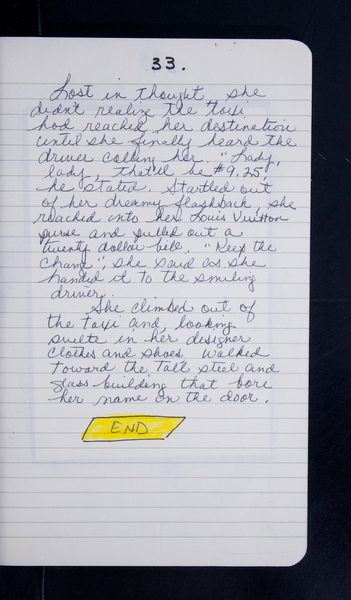 33.
Lost in thought she
didn't realize the taxi
had reached her destination
until she finally heard the
driver calling her. "Lady,
lady, that'll be $9.25"
he stated. Startled out
of her dreamy flashback, she
reached into her Louis Vuitton
purse and pulled out a
twenty dollar bill. "Keep the
change", she said as she
handed it to the smiling
driver.
She climbed out of
the taxi and, looking
svelte in her designer
clothes and shoes walked
toward the tall steel and
glass building that bore
her name on the door.
END